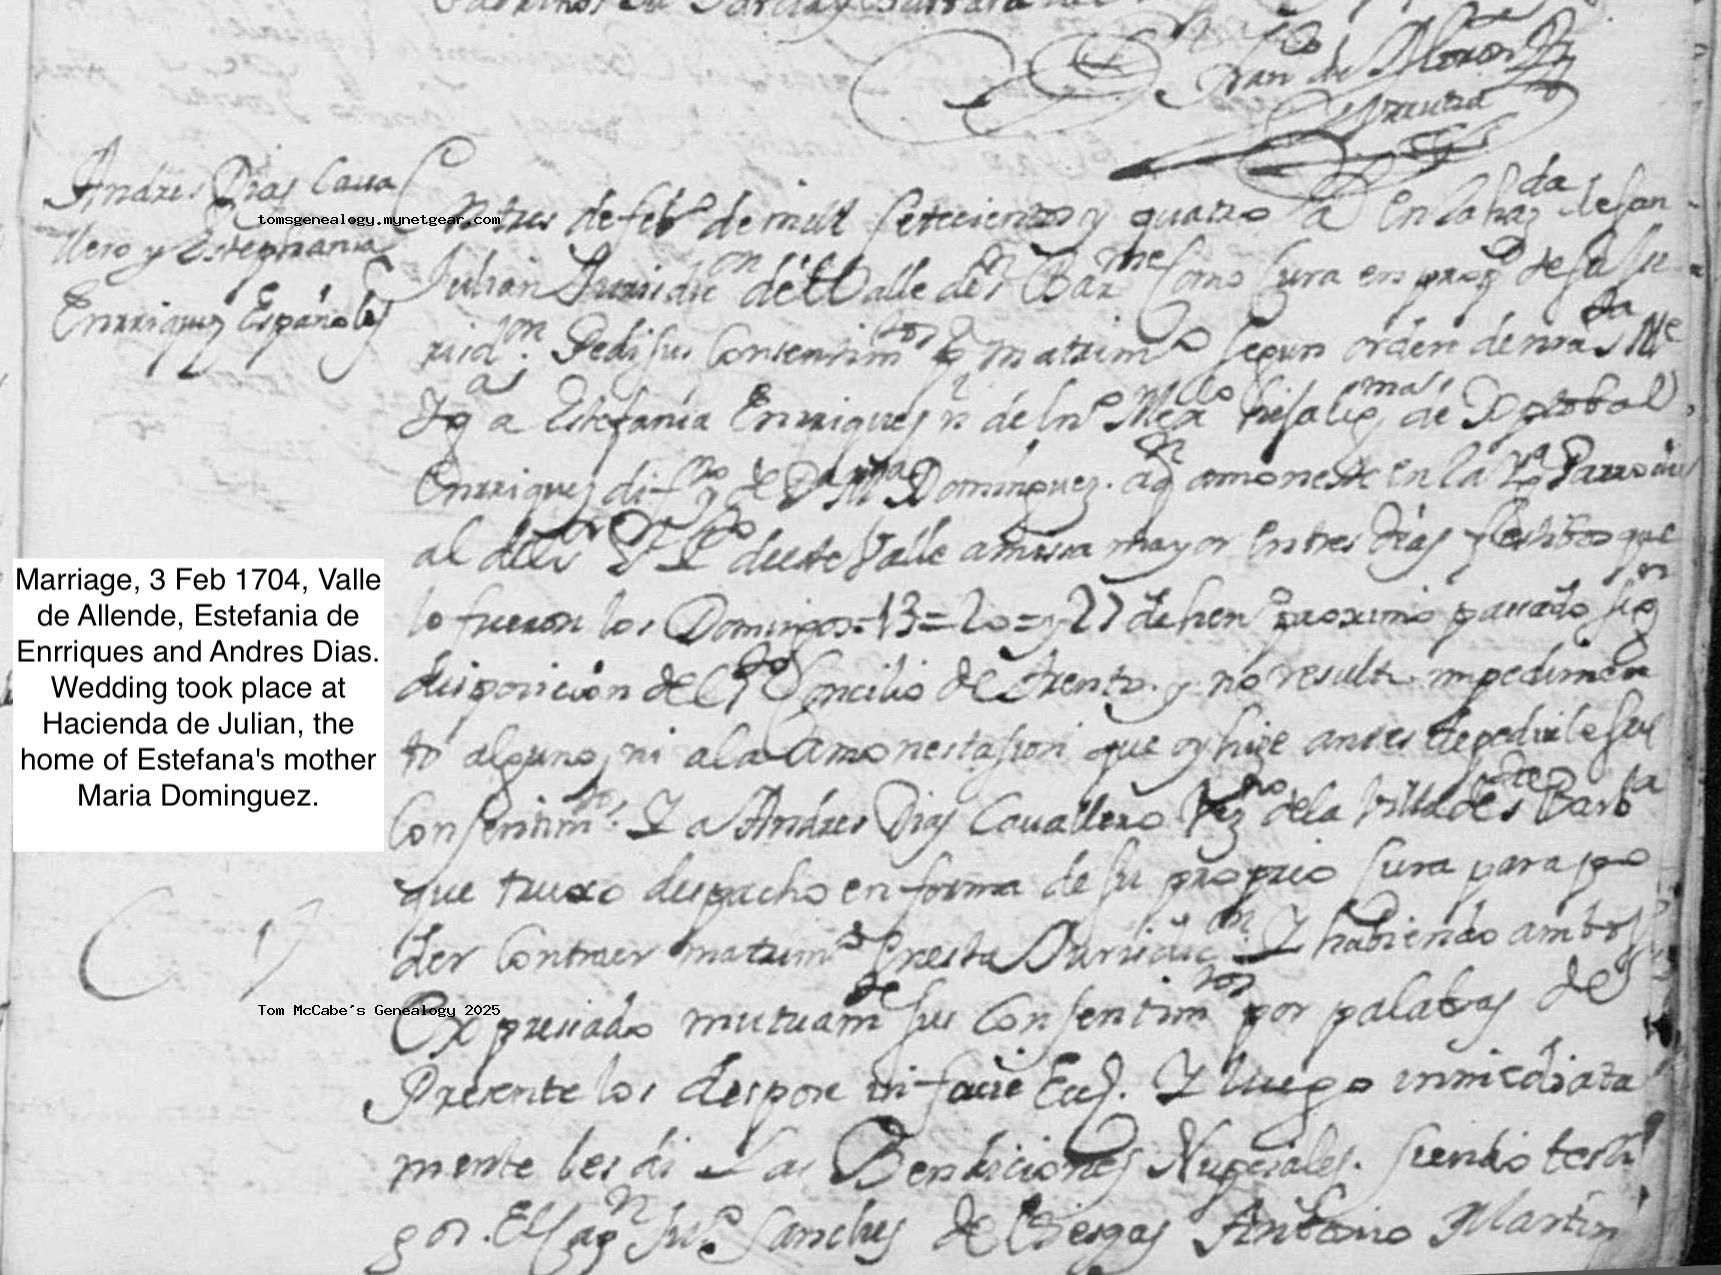 Juan de
Andres Dias Cava
llero y Estephania
Enrriquez Españoles
tomsgenealogy.mynetgear.com
En tres de febº de mill setecientos y quatro a en la hazda de San
Julian Jurisdicon del Valle de Sn Barme Como Cura en de su Ju
risdon. Pedi sus Consentimtos matrimº segun orden de nra Sta Me
Yga a Estefania Enrriques n de Inº hija de Xptobal
Enrriquez difto y de Da Ma Dominguez. aqn amoneste en la Yga Parroqui
al de este Valle a missa mayor en tres dias festibos que
lo fueron los Domingos = 13 = 20 = y 27 de henº proximo passado sign
disposicion del Sto Concilio de Trento. y no resulto impedimen
to alguno, ni a la Amonestasion que oy hize antes de pedirle sus
Consentimtos. Y a Andres Dias Cavallero Vezno de la Villa de Sta Barba
que truxo despacho en forma de su proprio Cura para po
der Contraer matrimº en esta Jurisdicon. Y habiendo ambos
Expressado mutuamte sus Consentimtos por palabras de
Presente los despose in facie Ecc. Y luego inmediata
mente les di Las Bendiciones Nupciales. siendo testi
gos. El Capn Juº Sanches de Antonio Martin
Marriage, 3 Feb 1704, Valle
de Allende, Estefania de
Enrriques and Andres Dias.
Wedding took place at
Hacienda de Julian, the
home of Estefana's mother
Maria Dominguez.
Tom McCabe's Genealogy 2025